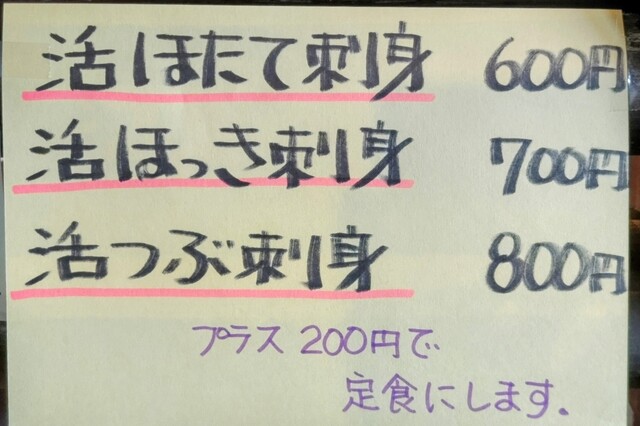 活ほたて刺身 600円
活ほっき刺身 700円
活つぶ刺身 800円
プラス200円で
定食にします.